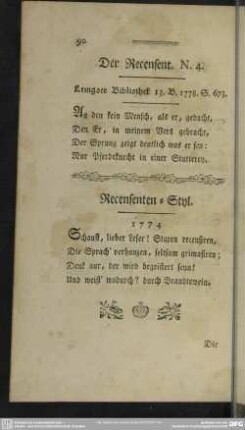 90
Der Recensent. N. 4.
Lemgoer Bibliothek 13. B. 1778. S. 673.
An den kein Mensch, als er, gedacht,
Den Er, in meinem Vers gebracht,
Der Sprung zeigt deutlich was er sey:
Nur Pferdeknecht in einer Stuterey.
Recensenten-Styl.
1774
Schaust, lieber Leser! Sparen recensiren,
Die Sprach' verhunzen, seltsam grimasiren;
Denk nur, der wird begeistert seyn!
Und weist' wodurch? durch Brandtewein.
Die